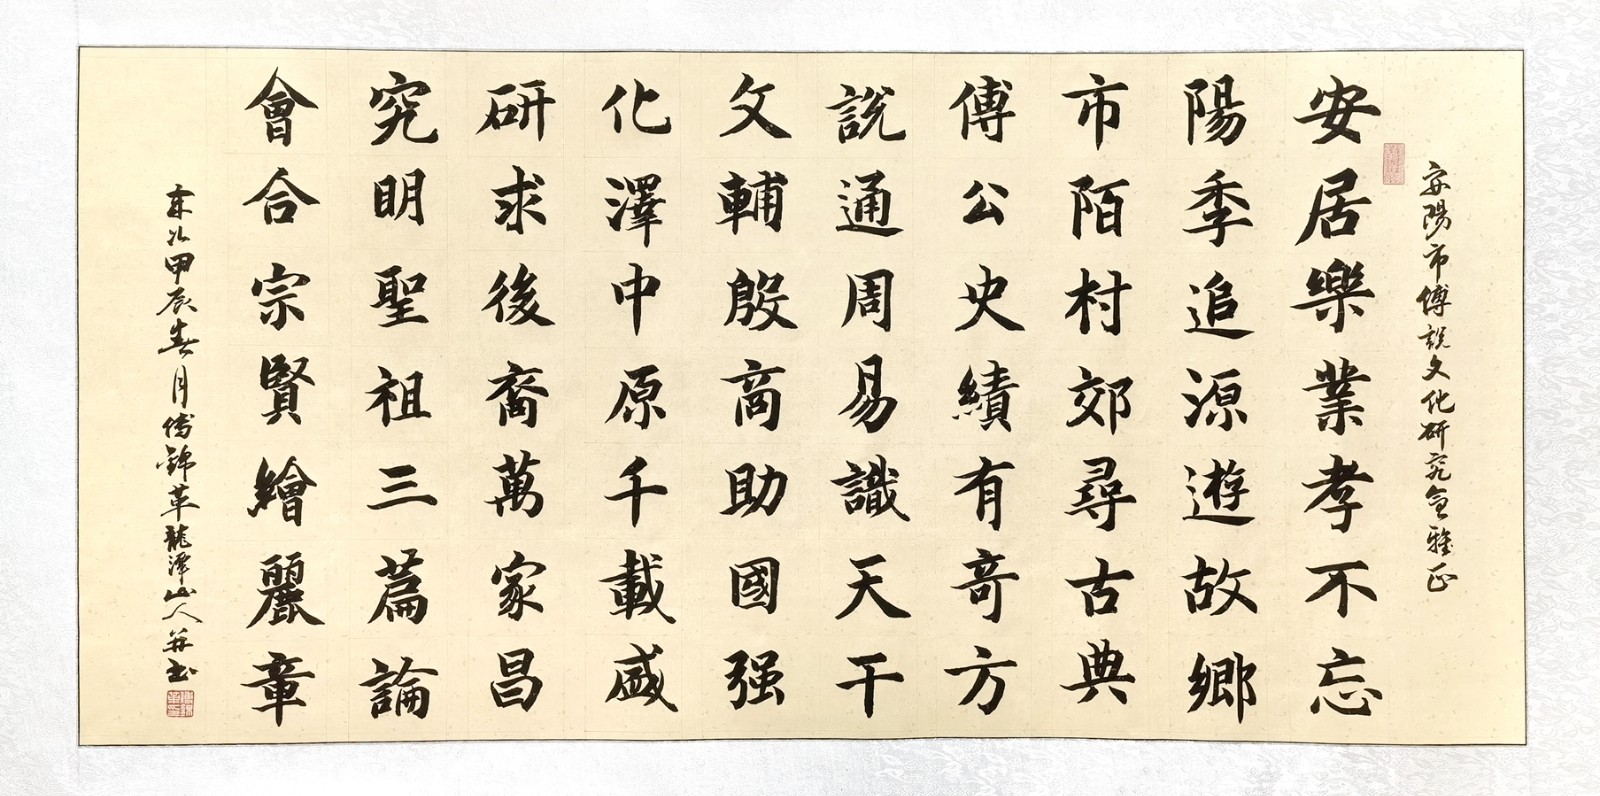 安陽市傅說文化研究會雅正
安居樂業孝不忘
陽季追源遊故鄉
市陌村郊尋古典
傅公史績有奇方
說通周易識天干
文輔殷商助國强
化澤中原千載盛
研求後裔萬家昌
究明聖祖三篇論
會合宗賢繪麗章
甲辰春月傅錦革龍潭山人并書